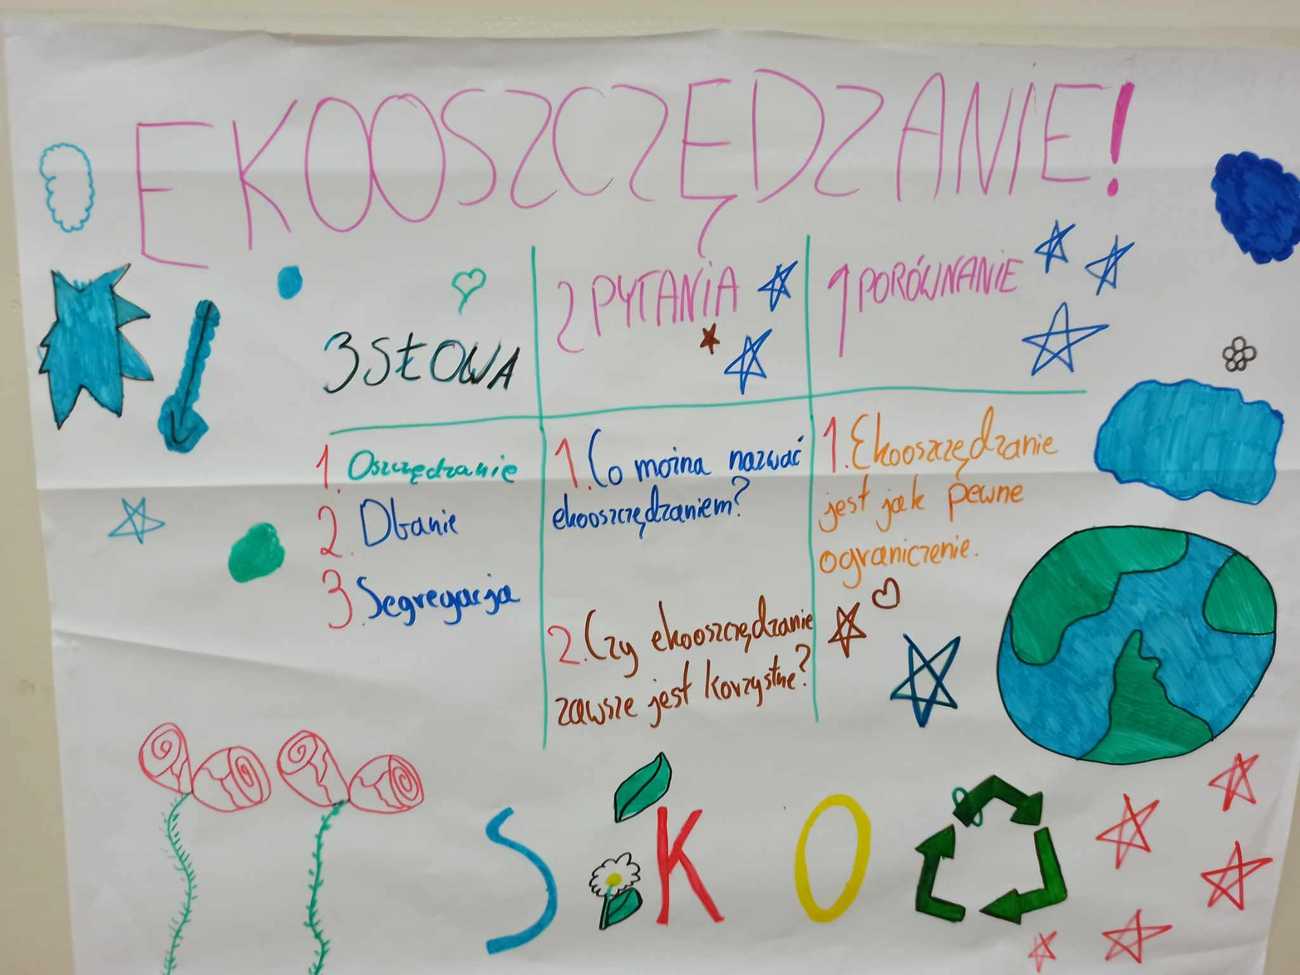 EKOOSZCZĘDZANIE!
3 SŁOWA
1. Oszczędzanie
2. Dbanie
3. Segregacja
2 PYTANIA
1. Co można nazwać
ekooszczędzaniem?
2. Czy ekooszczędzanie
zawsze jest korzystne?
1 PORÓWNANIE
1. Ekooszczędzanie
jest jak pewne
ograniczenie.
SKO